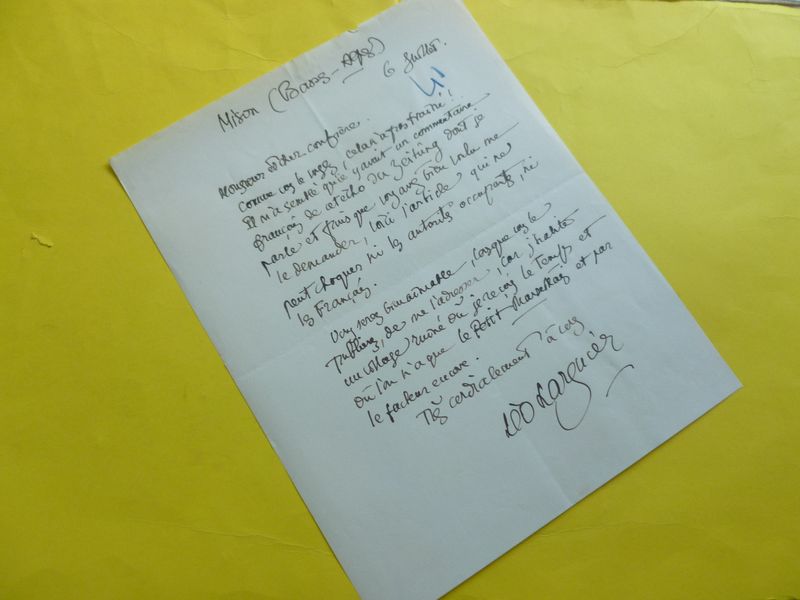 Mison (Basses-Alpes)
6 Juillet.
Monsieur et cher confrère.
Comme vous le voyez, cela n'a pas traîné!
Il m'a semblé qu'il y avait un commentaire
français de cet écho du Zeitung dont se
parle et puisque vous avez bien voulu me
le demander, voici l'article qui ne
peut choquer ni les autorités occupantes, ni
les Français.
Vous serez bien aimable, lorsque vous le
publierez, de me l'adresser, car j'habite
un village ruiné où je reçois le Temps et
où l'on n'a que le Petit Marseillais et par
le facteur encore.
Très cordialement à vous
Léo Larguier